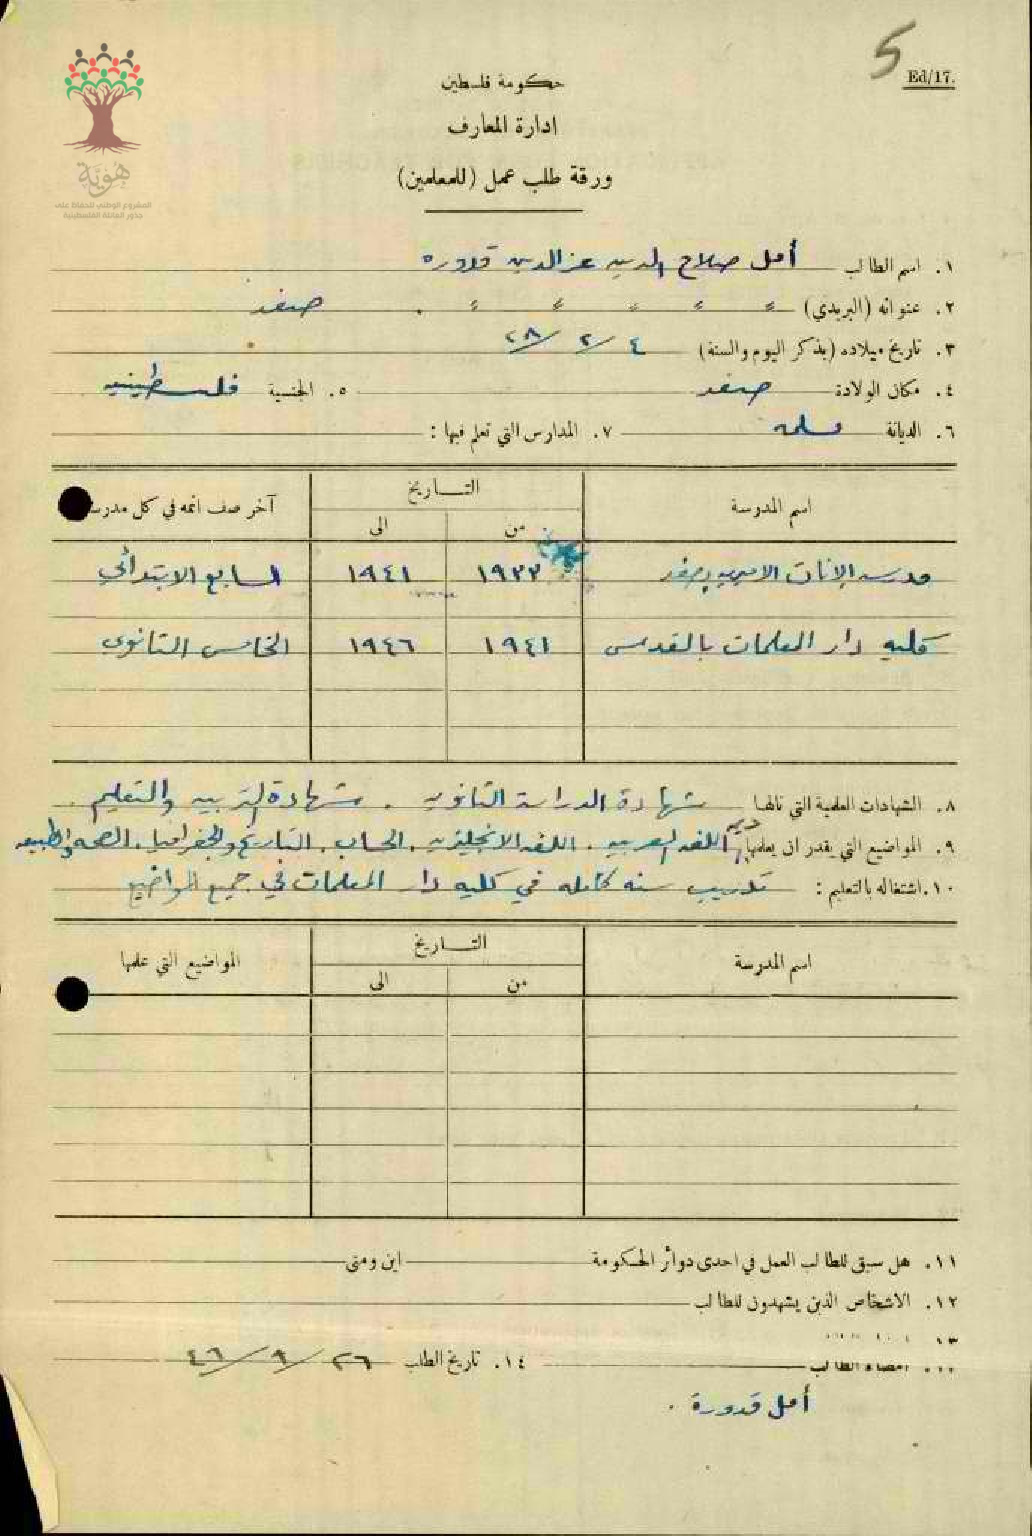 5
Ed/17.
هوية
المشروع الوطني للحفاظ على
جذور العائلة الفلسطينية
حكومة فلسطين
ادارة المعارف
ورقة طلب عمل (للمعلمين)
١. اسم الطالب أمل صلاح الدين عز الدين قدورة
٢. عنوانه (البريدي) " " " " " . صفد
٣. تاريخ ميلاده (يذكر اليوم والسنة) ٤/٢/٢٨
٤. مكان الولادة صفد ٥. الجنسية فلسطينيه
٦. الديانة مسلمه ٧. المدارس التي تعلم فيها :
اسم المدرسة التـــاريخ آخر صف اتمه في كل مدرسة
من الى
مدرسه الإناث الاميريه بصفد ١٩٣٣ ١٩٤١ السابع الابتدائي
كليه دار المعلمات بالقدس ١٩٤١ ١٩٤٦ الخامس الثانوي
٨. الشهادات العلمية التي نالها شهادة الدراسة الثانويه . شهادة التربيه والتعليم .
٩. المواضيع التي يقدر ان يعلمها دين، اللغه العربيه . اللغه الانجليزيه . الحساب . التاريخ والجغرافيا . الصحه والطبيعه
١٠. اشتغاله بالتعليم : تدريب سنه كامله في كليه دار المعلمات في جميع المواضيع
اسم المدرسة التـــاريخ المواضيع التي علمها
من الى
١١. هل سبق للطالب العمل في احدى دوائر الحكومة اين ومتى
١٢. الاشخاص الذين يشهدون للطالب
١٣
امضاء الطالب ١٤. تاريخ الطلب ٢٦/٩/٤٦
أمل قدورة .